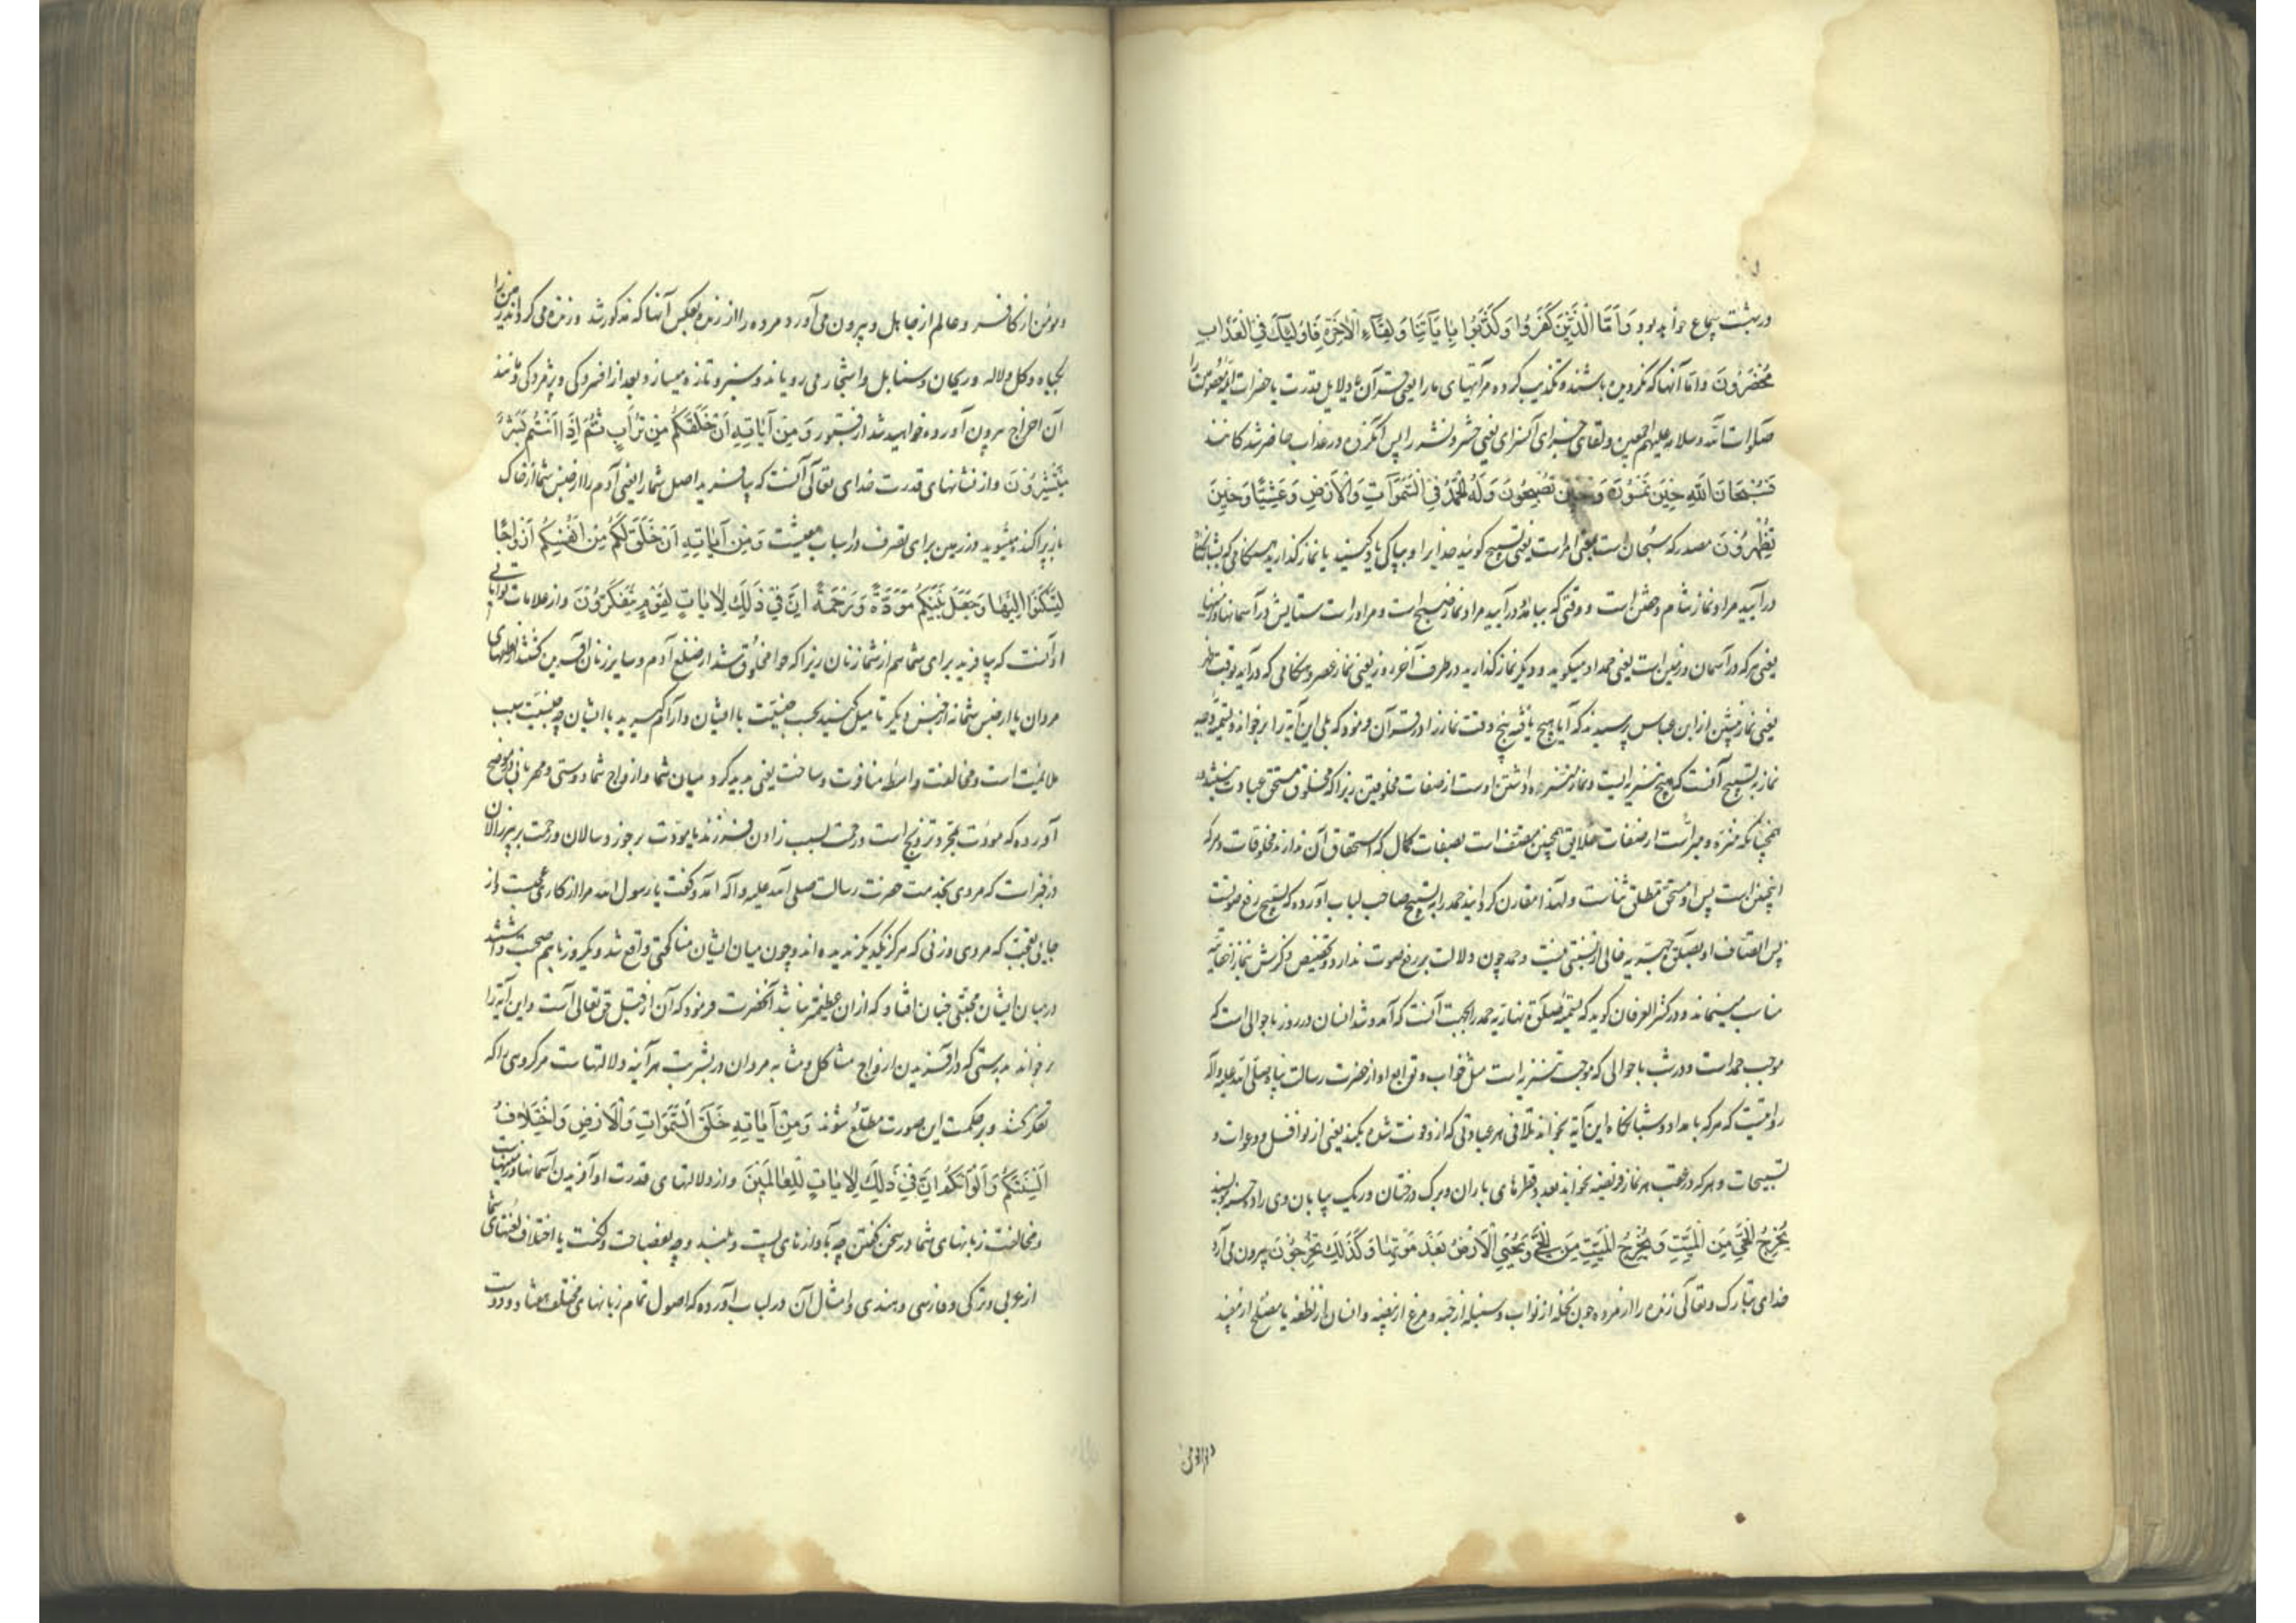 در بهشت سماع خواهد بود وَاَمَّا الَّذِینَ کَفَرُوا وَکَذَّبُوا بِاٰیَاتِنَا وَلِقَاۤءِ الْاٰخِرَةِ فَاُولٰئِکَ فِی الْعَذَابِ
مُحْضَرُونَ و اما آنها که نگرویده باشند و تکذیب کرده مر آیتهای ما را یعنی قرآن و دلایل قدرت یا حضرات ائمه معصومین را
صلوات الله و سلامه علیهم اجمعین و لقای سرای آخرت یعنی حشر و نشر را پس آنگروه در عذاب حاضر شدگانند
فَسُبْحَانَ اللّٰهِ حِینَ تُمْسُونَ وَحِینَ تُصْبِحُونَ وَلَهُ الْحَمْدُ فِی السَّمٰوَاتِ وَالْاَرْضِ وَعَشِیًّا وَحِینَ
تُظْهِرُونَ مصدر که سبحان است بمعنی امر است یعنی تسبیح گوئید خدایرا و بپاکی یاد کنید یا نماز گذارید هنگامی که بشبانگاه
در آیید مراد نماز شام و خفتن است و وقتی که ببامداد در آیید مراد نماز صبح است و مر اوراست ستایش در آسمانها و زمینها
یعنی هر که در آسمان و زمین است یعنی حمد او میگوید و دیگر نماز گذارید در طرف آخر روز یعنی نماز عصر و هنگامی که در آید بوقت ظهر
یعنی نماز پیشین از ابن عباس پرسیدند که آیا هیچ یافته پنج وقت نماز را در قرآن فرمود که بلی این آیه را بر خواند و تسمیه
نماز به تسبیح آنست که تسبیح تنزیه است و نماز منزه داشتن اوست از صفات مخلوقین زیرا که مخلوق مستحق عبادت نیست
همچنانکه منزه و مبراست از صفات خلایق همچنین متصف است بصفات کمال که استحقاق آن ندارند مخلوقات و هر که
اینچنین است پس او مستحق مطلق ثناست و لهذا مقارن گردانید حمد را به تسبیح صاحب لباب آورده که تسبیح رفع صوتست
پس اتصاف او بصلوة جهریه خالی از نسبتی نیست و حمد چون دلالت بر رفع صوت ندارد و تخصیص ذکرش بنماز اخفاتیه
مناسب مینماید و در کنز العرفان گوید که تسمیه صلوة نهاریه بحمد بجهت آنست که آمد و شد انسان در روز باحوالی است که
موجب حمد است و در شب باحوالی که موجب تنزیه است مثل خواب و توابع او از حضرت رسالت پناه صلی الله علیه و آله
روایتست که هر که بامداد و شبانگاه این آیه بخواند تلافی هر عبادتی که ازو فوت شده بکند یعنی از نوافل و دعوات و
تسبیحات و هر که در عقب هر نماز فریضه بخواند بعدد قطرهای باران و برگ درختان و ریگ بیابان وی را حسنه بنویسند
یُخْرِجُ الْحَیَّ مِنَ الْمَیِّتِ وَیُخْرِجُ الْمَیِّتَ مِنَ الْحَیِّ وَیُحْیِی الْاَرْضَ بَعْدَ مَوْتِهَا وَکَذٰلِکَ تُخْرَجُونَ بیرون می آرد
خدای تبارک و تعالی زنده را از مرده چون نخله از نواب و سنبله از حبه و مرغ از بیضه و انسان از نطفه یا مصلح از مفسد
و مومن از کافر و عالم از جاهل و بیرون می آورد مرده را از زنده بعکس آنها که مذکور شد و زنده می گرداند زمین را
بگیاه و گل و لاله و ریحان و سنابل و اشجار می رویاند و سبز و تازه میسازد بعد از افسردگی و پژمردگی و مانند
آن اخراج بیرون آورده خواهید شد از قبور وَمِنْ اٰیَاتِهِ اَنْ خَلَقَکُمْ مِنْ تُرَابٍ ثُمَّ اِذَا اَنْتُمْ بَشَرٌ
تَنْتَشِرُونَ و از نشانهای قدرت خدای تعالی آنست که بیافرید اصل شما را یعنی آدم را از جنس شما از خاک
باز پراکنده میشوید در زمین برای تصرف در اسباب معیشت وَمِنْ اٰیَاتِهِ اَنْ خَلَقَ لَکُمْ مِنْ اَنْفُسِکُمْ اَزْوَاجًا
لِتَسْکُنُوا اِلَیْهَا وَجَعَلَ بَیْنَکُمْ مَوَدَّةً وَرَحْمَةً اِنَّ فِی ذٰلِکَ لَاٰیَاتٍ لِقَوْمٍ یَتَفَکَّرُونَ و از علامات توانایی
او آنست که بیافرید برای شما هم از شما زنان زیرا که حوا مخلوق شد از ضلع آدم و سایر زنان آفریده گشتند از نطفهای
مردان یا از جنس شما نه از جنس دیگر تا میل کنید بحسب جنسیت با ایشان و آرام گیرید با ایشان چه جنسیت سبب
ملایمت است و مخالفت واسطه منافرت و ساخت یعنی پدید کرد میان شما و ازواج شما دوستی و مهربانی در موضح
آورده که مودت بمجرد تزویج است و رحمت بسبب زادن فرزند یا مودت بر جوزد سالان و رحمت بر پیر زالان
در خبر است که مردی بخدمت حضرت رسالت صلی الله علیه و آله آمد و گفت یا رسول الله مرا از کاری عجبست و از
جایی تعجبت که مردی و زنی که هرگز یکدیگر ندیده اند و چون میان ایشان مناکحتی واقع شد و یکروز با هم صحبت داشتند
در میان ایشان محبتی چنان افتاد که از آن عظیمتر نباشد آنحضرت فرمود که آن از قبل حق تعالی است و این آیه را
بر خواند بدرستی که در آفریدن ازواج مشاکل و مشابه مردان در بشریت هر آینه دلالتهاست مر گروهی را که
تفکر کنند و بر حکمت این صورت مطلع شوند وَمِنْ اٰیَاتِهِ خَلْقُ السَّمٰوَاتِ وَالْاَرْضِ وَاخْتِلَافُ
اَلْسِنَتِکُمْ وَاَلْوَانِکُمْ اِنَّ فِی ذٰلِکَ لَاٰیَاتٍ لِلْعَالَمِینَ و از دلالتهای قدرت او آفریدن آسمانها و زمینهاست
و مخالفت زبانهای شما در سخن گفتن چه بآوازهای پست و بلند و چه بفصاحت و لکنت یا اختلاف لغتهای شما
از عربی و ترکی و فارسی و هندی و امثال آن در لباب آورده که اصول تمام زبانهای مختلف هفتاد و دوست